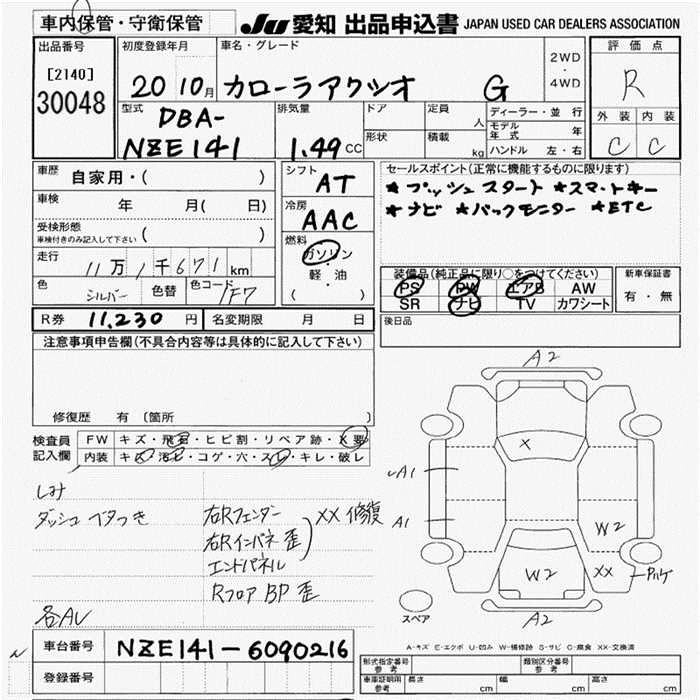 車内保管・守衛保管 JU 愛知 出品申込書 JAPAN USED CAR DEALERS ASSOCIATION
出品番号 初度登録年月 車名・グレード 2WD・4WD 評価点
[2140] 30048 20 10月 カローラアクシオ G R
型式 排気量 ドア 定員 人 ディーラー・並行 外装 内装
DBA-
NZE141 1.49CC 形状 積載 kg モデル年式 年 C C
ハンドル 左・右
車歴 自家用・( ) シフト AT セールスポイント(正常に機能するものに限ります)
車検 年 月( 日) 冷房 AAC ★プッシュスタート ★スマートキー
受検形態 車検付きのみ記入して下さい ( ) ★ナビ ★バックモニター ★ETC
走行 11万1千671km 燃料 ガソリン・軽・油 ( )
装備品(純正品に限り○をつけてください) 新車保証書
色 シルバー 色替 色コード 1F7 PS PW エアB AW 有・無
SR ナビ TV カワシート
R券 11,230円 名変期限 月 日 後日品
注意事項申告欄(不具合内容等は具体的に記入して下さい)
修復歴 有 〔箇所
検査員記入欄 FW キズ・飛石・ヒビ割・リペア跡・X要
内装 キズ・汚レ・コゲ・穴・スレ・キレ・破レ
しみ
ダッシュベタつき
右Rフェンダー XX 修復
右Rインパネ 歪
エンドパネル
Rフロア BP 歪
各AU
A2
X
A1
A1
W2
W2
XX
スペア
A2
A-キズ E-エクボ U-凹み W-補修跡 S-サビ C-腐食 XX-交換済
車台番号 NZE141-6090216
登録番号
形式指定番号 参考 類別区分番号 参考
車庫証明用 参考 長さ cm 幅 cm 高さ cm